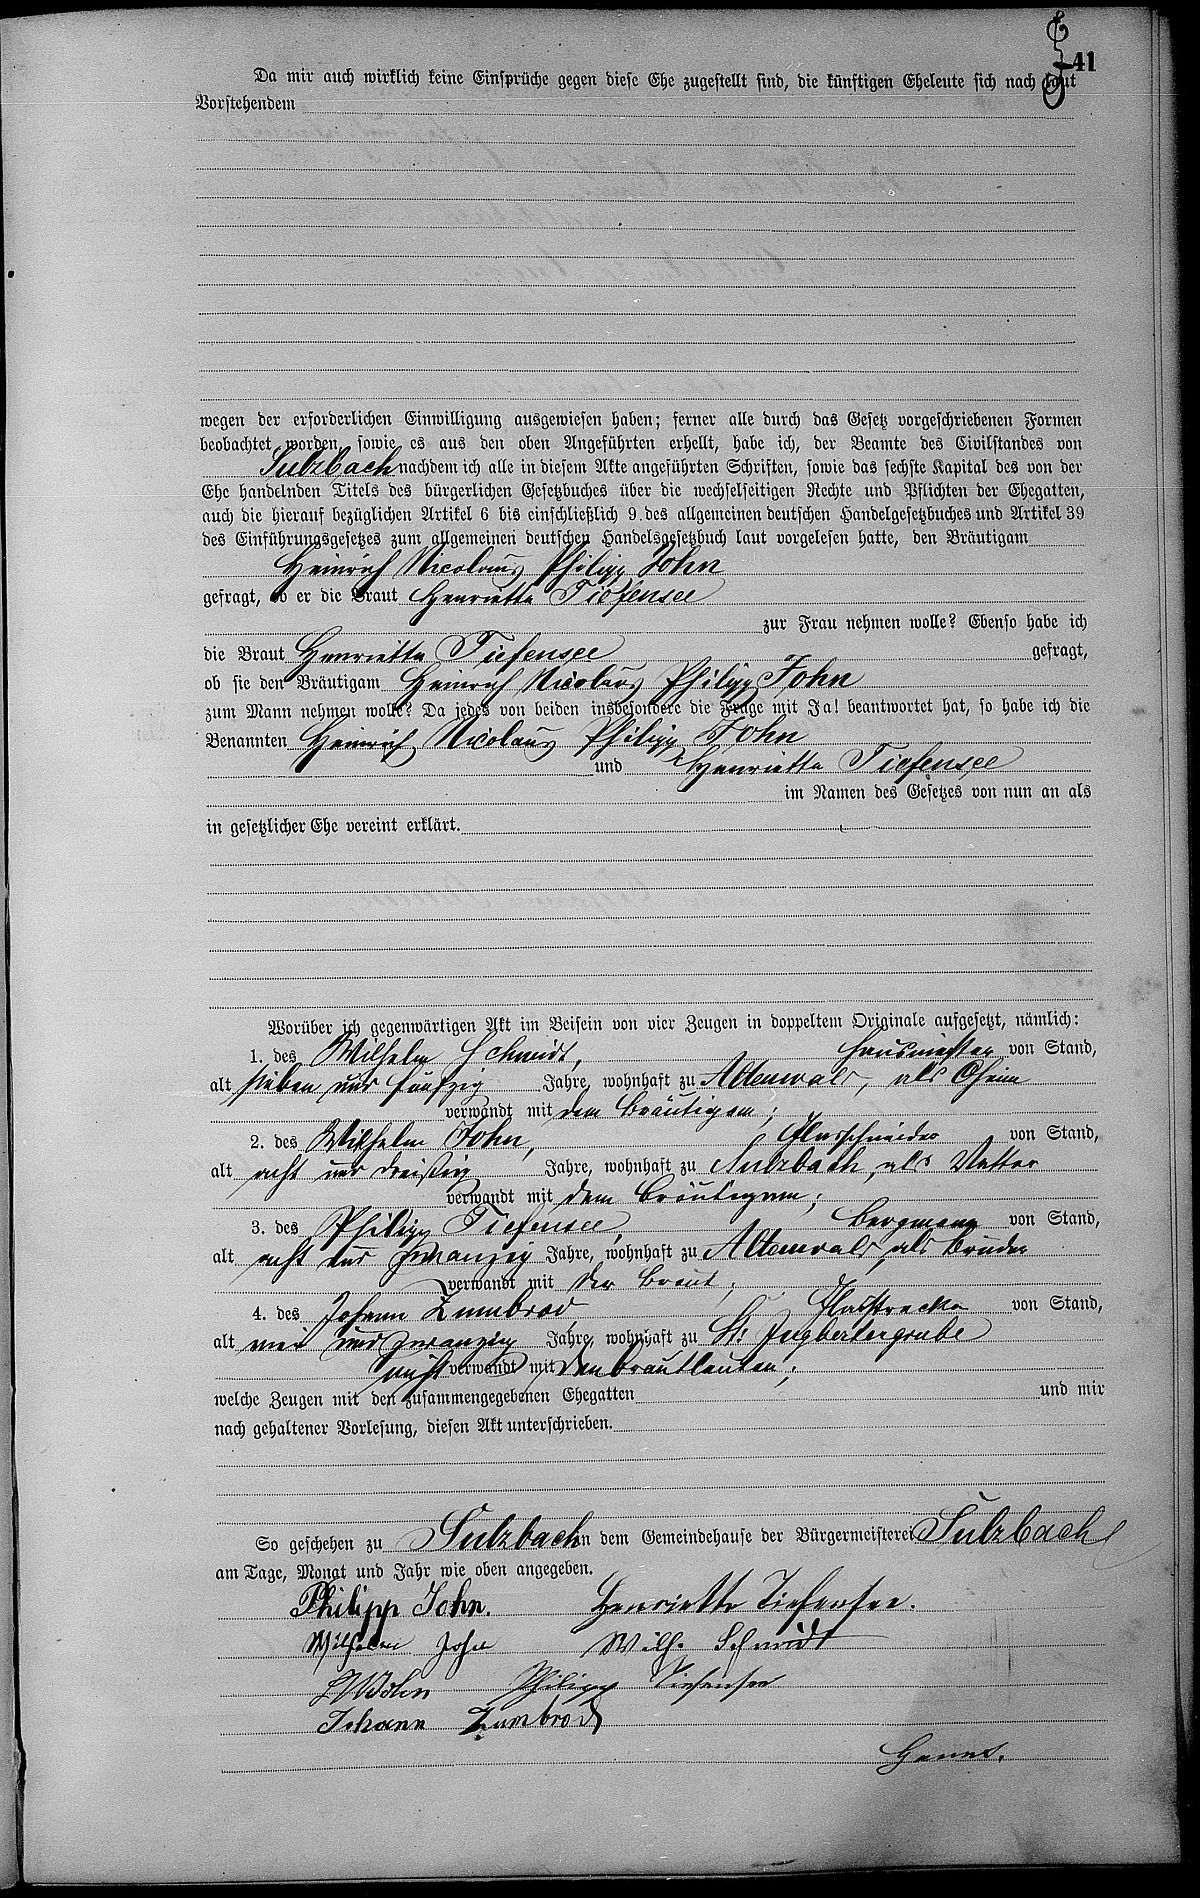 41
Da mir auch wirklich keine Einsprüche gegen diese Ehe zugestellt sind, die künftigen Eheleute sich nach laut
Vorstehendem
wegen der erforderlichen Einwilligung ausgewiesen haben; ferner alle durch das Gesetz vorgeschriebenen Formen
beobachtet worden, sowie es aus den oben Angeführten erhellt, habe ich, der Beamte des Civilstandes von
Sulzbach nachdem ich alle in diesem Akte angeführten Schriften, sowie das sechste Kapital des von der
Ehe handelnden Titels des bürgerlichen Gesetzbuches über die wechselseitigen Rechte und Pflichten der Ehegatten,
auch die hierauf bezüglichen Artikel 6 bis einschließlich 9. des allgemeinen deutschen Handelgesetzbuches und Artikel 39
des Einführungsgesetzes zum allgemeinen deutschen Handelsgesetzbuch laut vorgelesen hatte, den Bräutigam
Heinrich Nicolaus Philipp John
gefragt, ob er die Braut Henriette Tiefensee
zur Frau nehmen wolle? Ebenso habe ich
die Braut Henriette Tiefensee gefragt,
ob sie den Bräutigam Heinrich Nicolaus Philipp John
zum Mann nehmen wolle? Da jedes von beiden insbesondere die Frage mit Ja! beantwortet hat, so habe ich die
Benannten Heinrich Nicolaus Philipp John
und Henriette Tiefensee
im Namen des Gesetzes von nun an als
in gesetzlicher Ehe vereint erklärt.
Worüber ich gegenwärtigen Akt im Beisein von vier Zeugen in doppeltem Originale aufgesetzt, nämlich:
1. des Wilhelm Schmidt, Hausmeister von Stand,
alt sieben und fünfzig Jahre, wohnhaft zu Altenwald, als Oheim
verwandt mit dem Bräutigam;
2. des Wilhelm John, Glasschneider von Stand,
alt acht und dreißig Jahre, wohnhaft zu Sulzbach, als Vetter
verwandt mit dem Bräutigam;
3. des Philipp Tiefensee, Bergmann von Stand,
alt acht und zwanzig Jahre, wohnhaft zu Altenwald, als Bruder
verwandt mit der Braut;
4. des Johann Zumbrod, Glasstrecker von Stand,
alt vier und zwanzig Jahre, wohnhaft zu St. Ingbertergrube
nicht verwandt mit den Brautleuten;
welche Zeugen mit den zusammengegebenen Ehegatten und mir
nach gehaltener Vorlesung, diesen Akt unterschrieben.
So geschehen zu Sulzbach in dem Gemeindehause der Bürgermeisterei Sulzbach
am Tage, Monat und Jahr wie oben angegeben.
Philipp John. Henriette Tiefensee.
Wilhelm John Wilh. Schmidt
Philipp Tiefensee
Johann Zumbrod